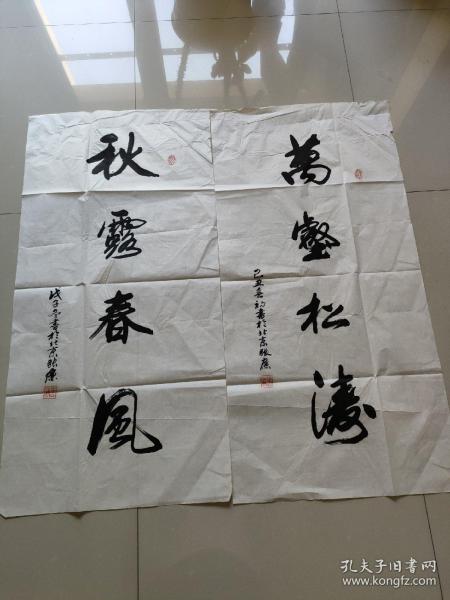 萬壑松濤
己丑春初書於北京
秋露春風
戊子
書於北京
孔夫子旧书网
www.kongfz.com